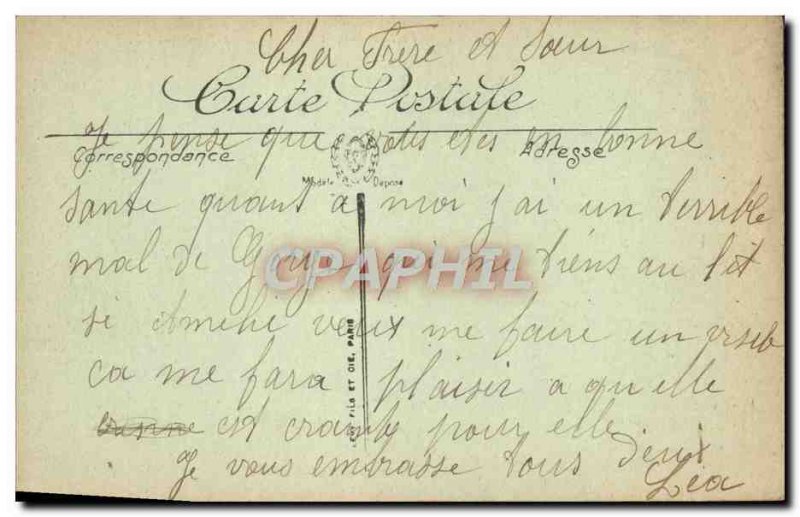 Cher Frere et Soeur
Carte Postale
Je pense que vous etes en bonne
Correspondance
Adresse
Modèle Déposé
sante quant a moi j'ai un terrible
mal de Gorge qui me tiens au lit
CPAPHIL
si Amelie veux me faire un visite
ca me fara plaisir a qu elle
est crainte pour elle
Je vous embrasse tous deux
Lea
FILS ET CIE, PARIS